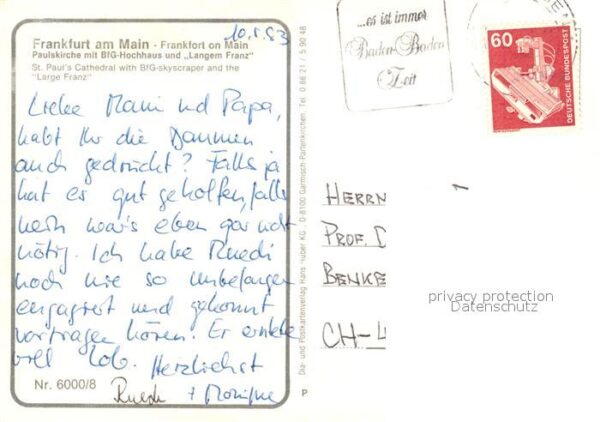 10.5.83
Frankfurt am Main - Frankfort on Main
Paulskirche mit BfG-Hochhaus und „Langem Franz"
St. Paul's Cathedral with BfG-skyscraper and the
"Large Franz"
Liebe Mami und Papa,
habt Ihr die Daumen
auch gedrückt? Falls ja
hat es gut geholfen, falls
nein war's eben gar nicht
nötig. Ich habe Ruedi
noch nie so unbefangen
engagiert und gekonnt
vortragen hören. Er erntete
viel Lob. Herzlichst
Ruedi + Monique
Nr. 6000/8
Dia- und Postkartenverlag Hans Huber KG, D-8100 Garmisch-Partenkirchen, Tel. 0 88 21 / 5 90 48
P
...es ist immer
Baden-Baden
Zeit
60
DEUTSCHE BUNDESPOST
HERRN
PROF. D
BENKE
CH-4
privacy protection
Datenschutz